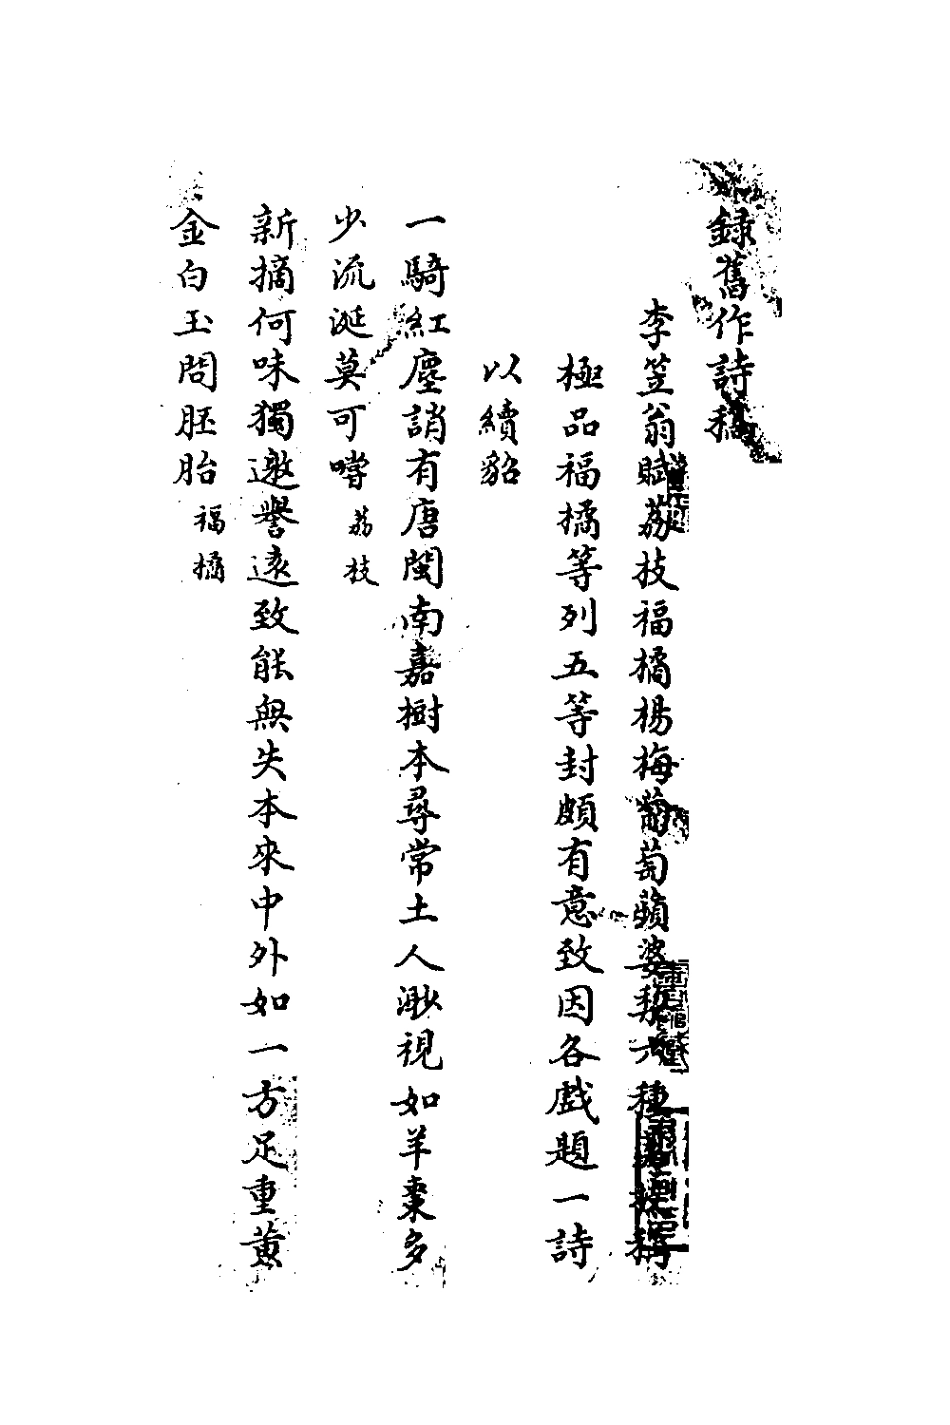 錄舊作詩稿
李笠翁賦荔枝福橘楊梅葡萄蘋婆梨六種稱
極品福橘等列五等封頗有意致因各戲題一詩
以續貂
一騎紅塵誚有唐閩南嘉樹本尋常土人渺視如羊棗多
少流涎莫可嚐 荔枝
新摘何味獨邀譽遠致能無失本來中外如一方足重黃
金白玉問胚胎 福橘